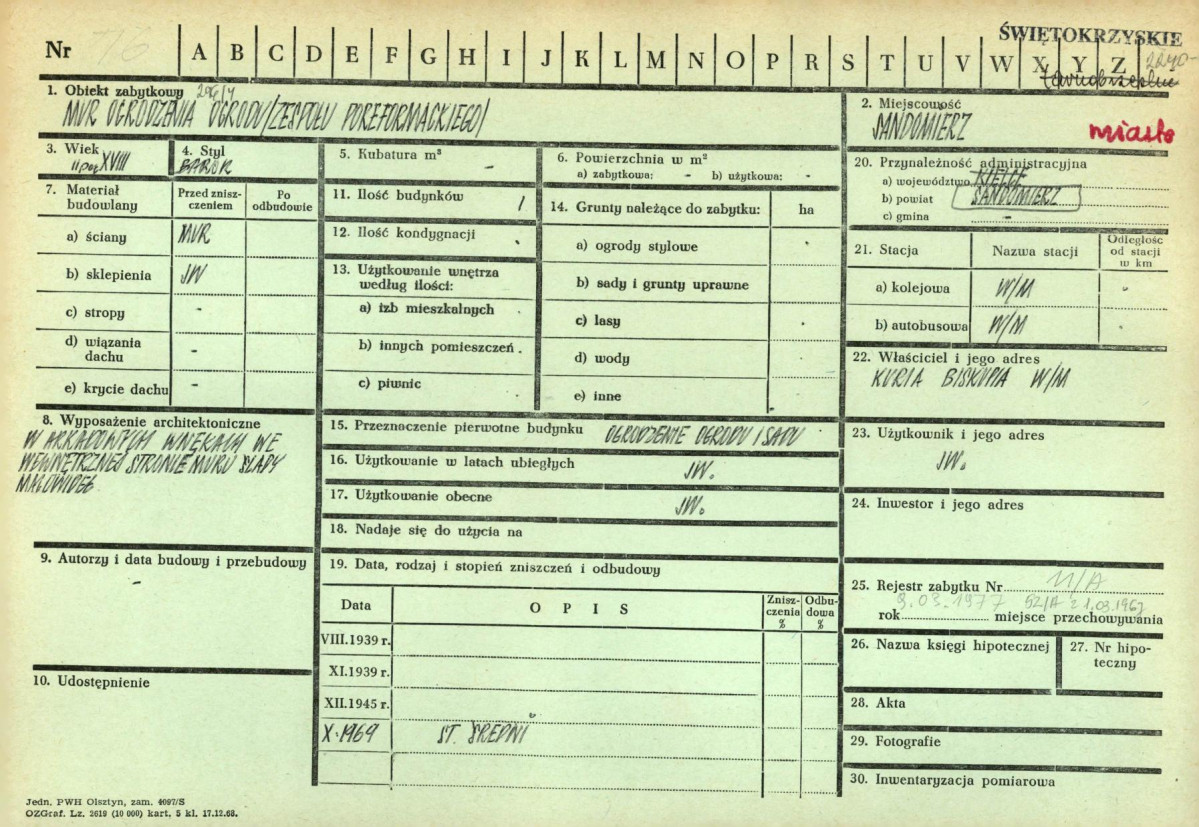 Nr 76 A B C D E F G H I J K L M N O P R S T U V W X Y Z
ŚWIĘTOKRZYSKIE
2240-
tarnobrzeskie
1. Obiekt zabytkowy 206/4
MUR OGRODZENIA OGRODU/ZESPOŁU POREFORMACKIEGO/
2. Miejscowość
SANDOMIERZ miasto
3. Wiek
II poł XVIII
4. Styl
BAROK
5. Kubatura m³ -
6. Powierzchnia w m²
a) zabytkowa: - b) użytkowa: -
7. Materiał budowlany
Przed zniszczeniem
Po odbudowie
a) ściany MUR
b) sklepienia JW
c) stropy -
d) wiązania dachu -
e) krycie dachu -
8. Wyposażenie architektoniczne
W ARKADOWYCH WNĘKACH WE
WEWNĘTRZNEJ STRONIE MURU ŚLADY
MALOWIDEŁ
9. Autorzy i data budowy i przebudowy
-
10. Udostępnienie
11. Ilość budynków 1
12. Ilość kondygnacji -
13. Użytkowanie wnętrza
według ilości:
a) izb mieszkalnych -
b) innych pomieszczeń -
c) piwnic
14. Grunty należące do zabytku: ha
a) ogrody stylowe
b) sady i grunty uprawne
c) lasy
d) wody
e) inne
15. Przeznaczenie pierwotne budynku OGRODZENIE OGRODU I SADU
16. Użytkowanie w latach ubiegłych JW.
17. Użytkowanie obecne JW.
18. Nadaje się do użycia na
19. Data, rodzaj i stopień zniszczeń i odbudowy
Data OPIS Zniszczenia % Odbudowa %
VIII.1939 r.
XI.1939 r.
XII.1945 r.
X.1969 ST. ŚREDNI
20. Przynależność administracyjna
a) województwo KIELCE
b) powiat SANDOMIERZ
c) gmina -
21. Stacja Nazwa stacji Odległość od stacji w km
a) kolejowa W/M -
b) autobusowa W/M -
22. Właściciel i jego adres
KURIA BISKUPIA W/M
23. Użytkownik i jego adres
JW.
24. Inwestor i jego adres
25. Rejestr zabytku Nr 11/A
9.03.1977 52/A z 1.03.1967
rok miejsce przechowywania
26. Nazwa księgi hipotecznej
27. Nr hipoteczny
28. Akta
29. Fotografie
30. Inwentaryzacja pomiarowa
Jedn. PWH Olsztyn, zam. 4097/S
OZGraf. Lz. 2619 (10 000) kart, 5 kl. 17.12.68.